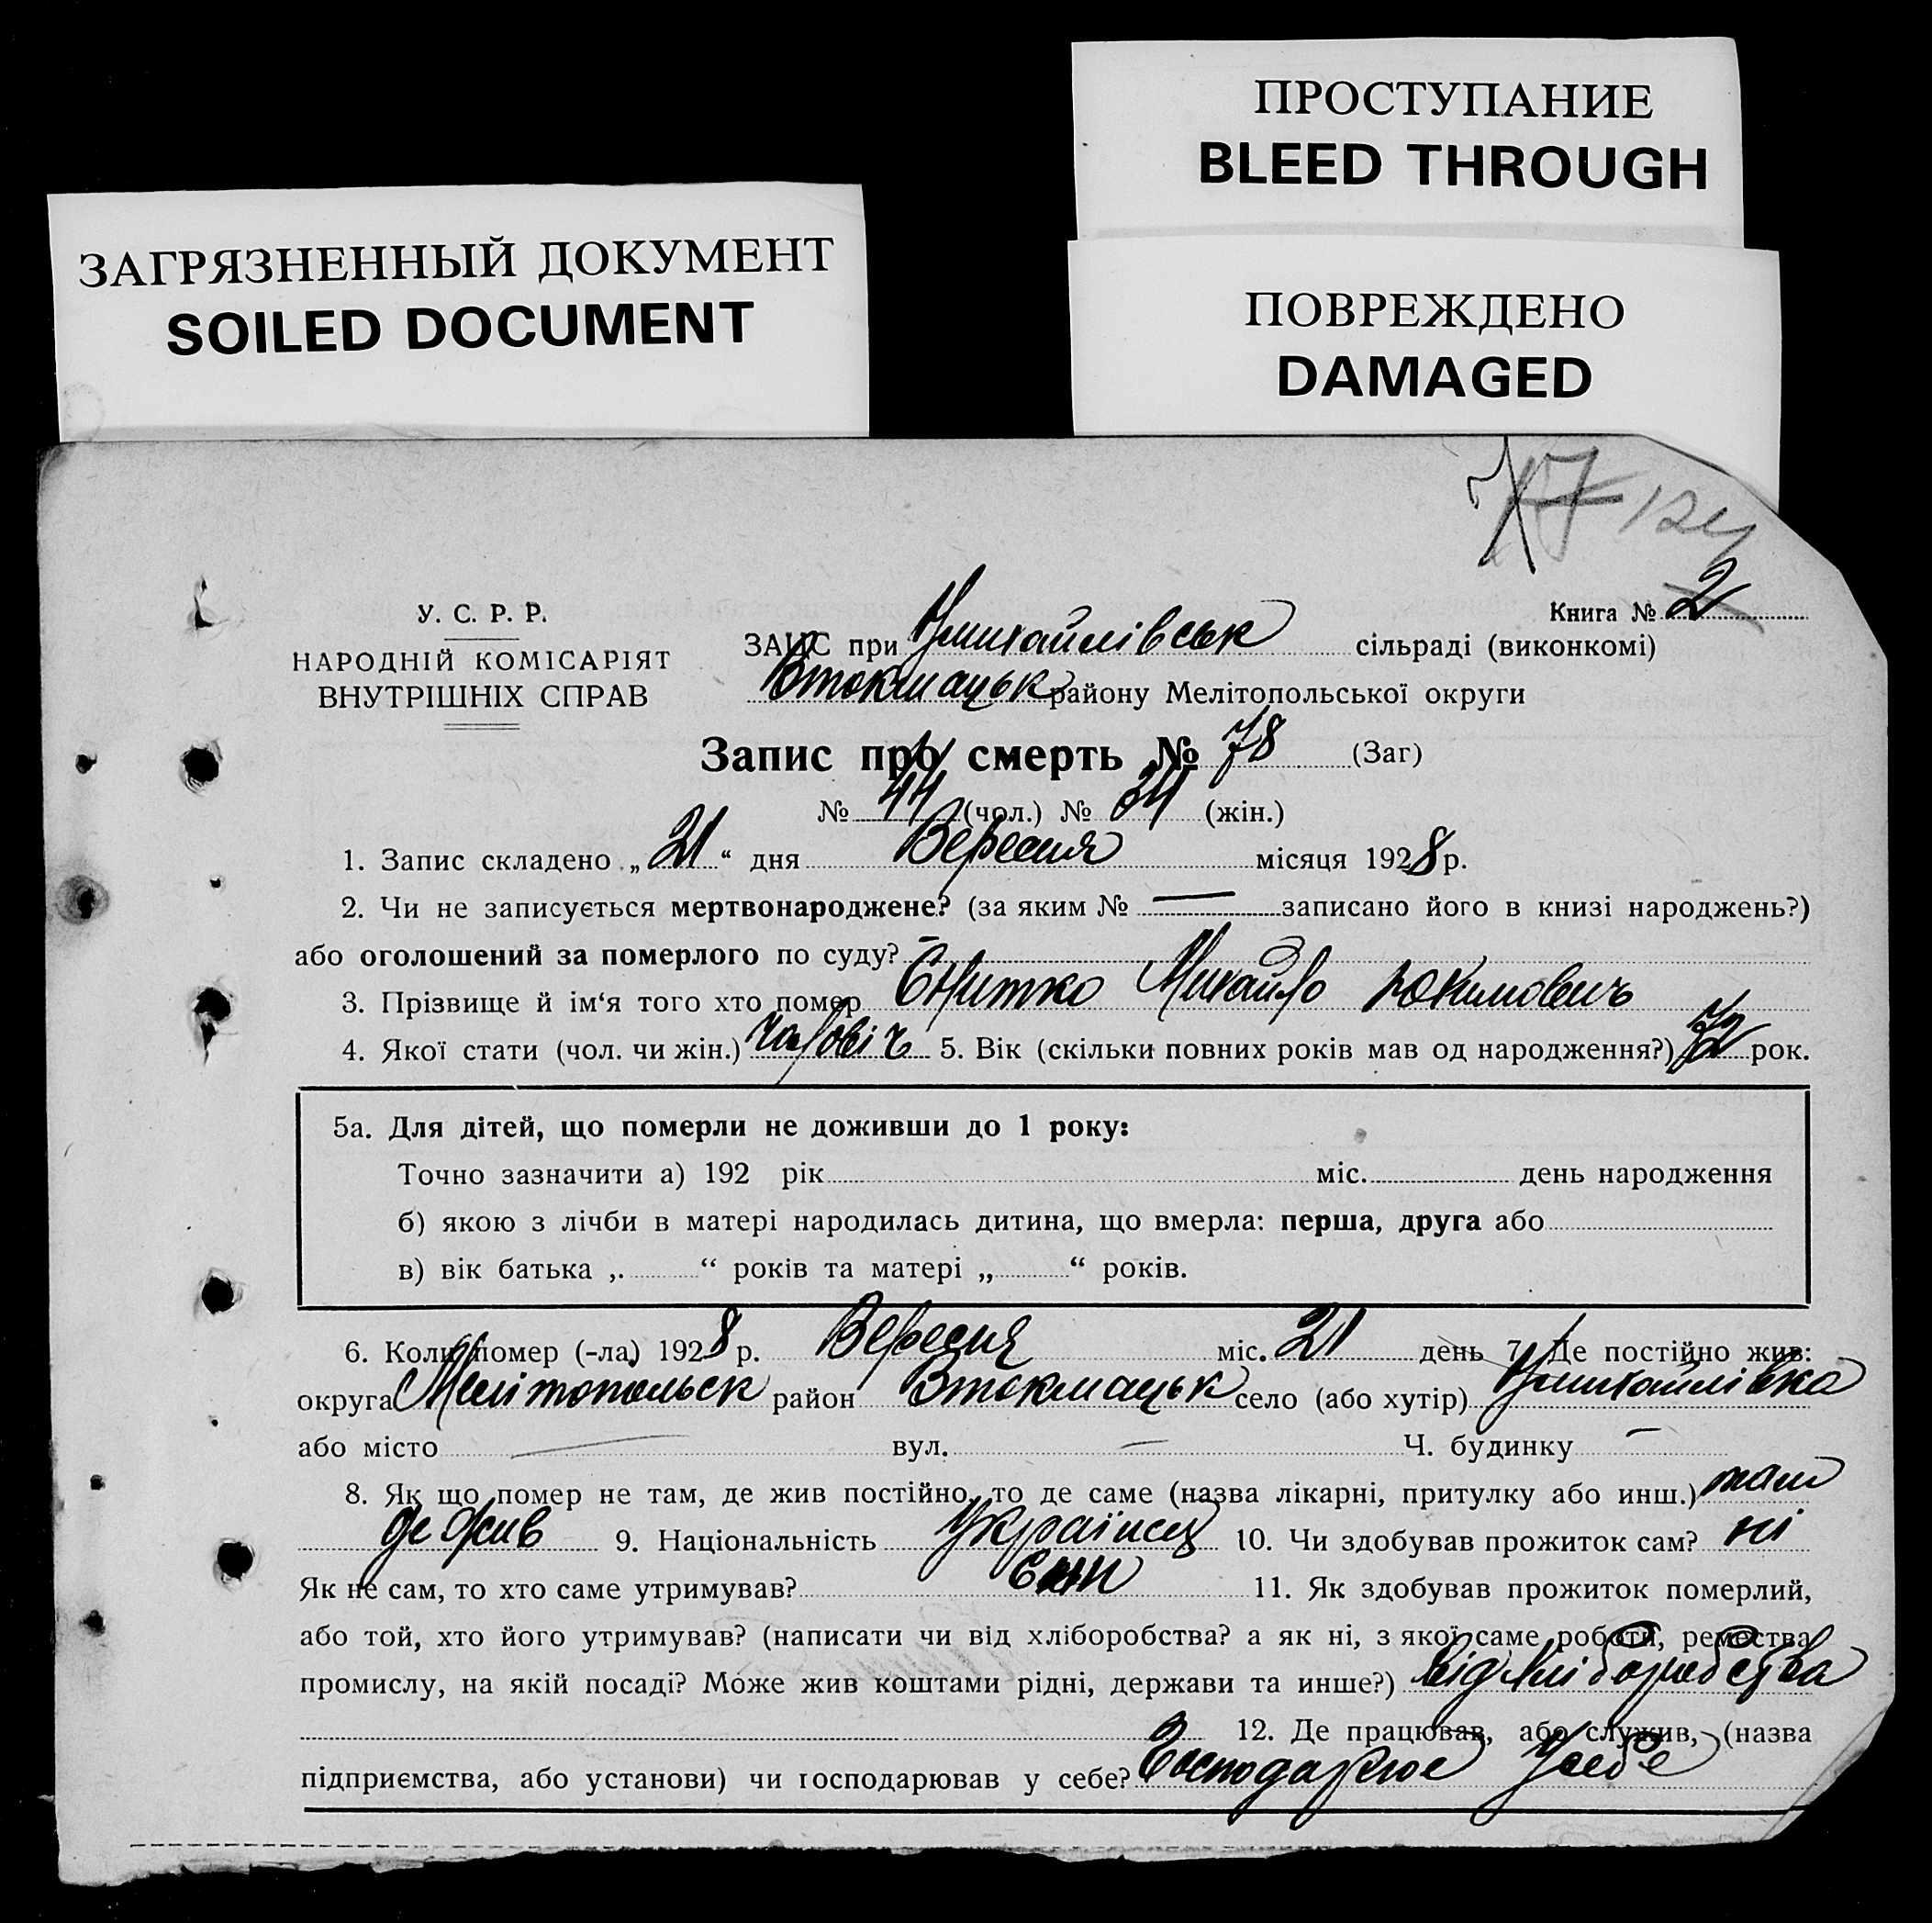 ПРОСТУПАНИЕ
BLEED THROUGH
ЗАГРЯЗНЕННЫЙ ДОКУМЕНТ
SOILED DOCUMENT
ПОВРЕЖДЕНО
DAMAGED
Книга № 2
У. С. Р. Р.
НАРОДНІЙ КОМІСАРІЯТ
ВНУТРІШНІХ СПРАВ
ЗАПИС при сільраді (виконкомі)
Втокмацьк району Мелітопольської округи
Запис про смерть № 78 (Заг)
№ 44 (чол.) № 34 (жін.)
1. Запис складено „21“ дня Вересня місяця 1928 р.
2. Чи не записується мертвонароджене? (за яким № — записано його в книзі народжень?)
або оголошений за померлого по суду? —
3. Прізвище й ім‘я того хто помер Михайло
4. Якої стати (чол. чи жін.) чоловіч 5. Вік (скільки повних років мав од народження?) 72 рок.
5а. Для дітей, що померли не доживши до 1 року:
Точно зазначити а) 192 рік міс. день народження
б) якою з лічби в матері народилась дитина, що вмерла: перша, друга або
в) вік батька „ “ років та матері „ “ років.
6. Коли помер (-ла) 1928 р. Вересня міс. 21 день 7. Де постійно жив:
округа Мелітопольськ район Втокмацьк село (або хутір)
або місто — вул. — Ч. будинку —
8. Як що помер не там, де жив постійно, то де саме (назва лікарні, притулку або инш.) там
де жив 9. Національність Українец 10. Чи здобував прожиток сам? ні
Як не сам, то хто саме утримував? 11. Як здобував прожиток померлий,
або той, хто його утримував? (написати чи від хліборобства? а як ні, з якої саме роботи, ремества
промислу, на якій посаді? Може жив коштами рідні, держави та инше?) від хліборобства
12. Де працював, або служив, (назва
підприємства, або установи) чи господарював у себе? Господарює у себе